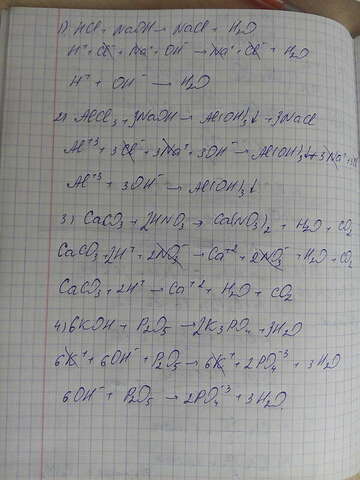 1) HCl + NaOH → NaCl + H₂O
H⁺ + Cl⁻ + Na⁺ + OH⁻ → Na⁺ + Cl⁻ + H₂O
H⁺ + OH⁻ → H₂O
2) AlCl₃ + 3NaOH → Al(OH)₃↓ + 3NaCl
Al⁺³ + 3Cl⁻ + 3Na⁺ + 3OH⁻ → Al(OH)₃↓ + 3Na⁺ +
Al⁺³ + 3OH⁻ → Al(OH)₃↓
3) CaCO₃ + 2HNO₃ → Ca(NO₃)₂ + H₂O + CO₂
CaCO₃ + 2H⁺ + 2NO₃⁻ → Ca⁺² + 2NO₃⁻ + H₂O + CO₂
CaCO₃ + 2H⁺ → Ca⁺² + H₂O + CO₂
4) 6KOH + P₂O₅ → 2K₃PO₄ + 3H₂O
6K⁺ + 6OH⁻ + P₂O₅ → 6K⁺ + 2PO₄⁻³ + 3H₂O
6OH⁻ + P₂O₅ → 2PO₄⁻³ + 3H₂O.